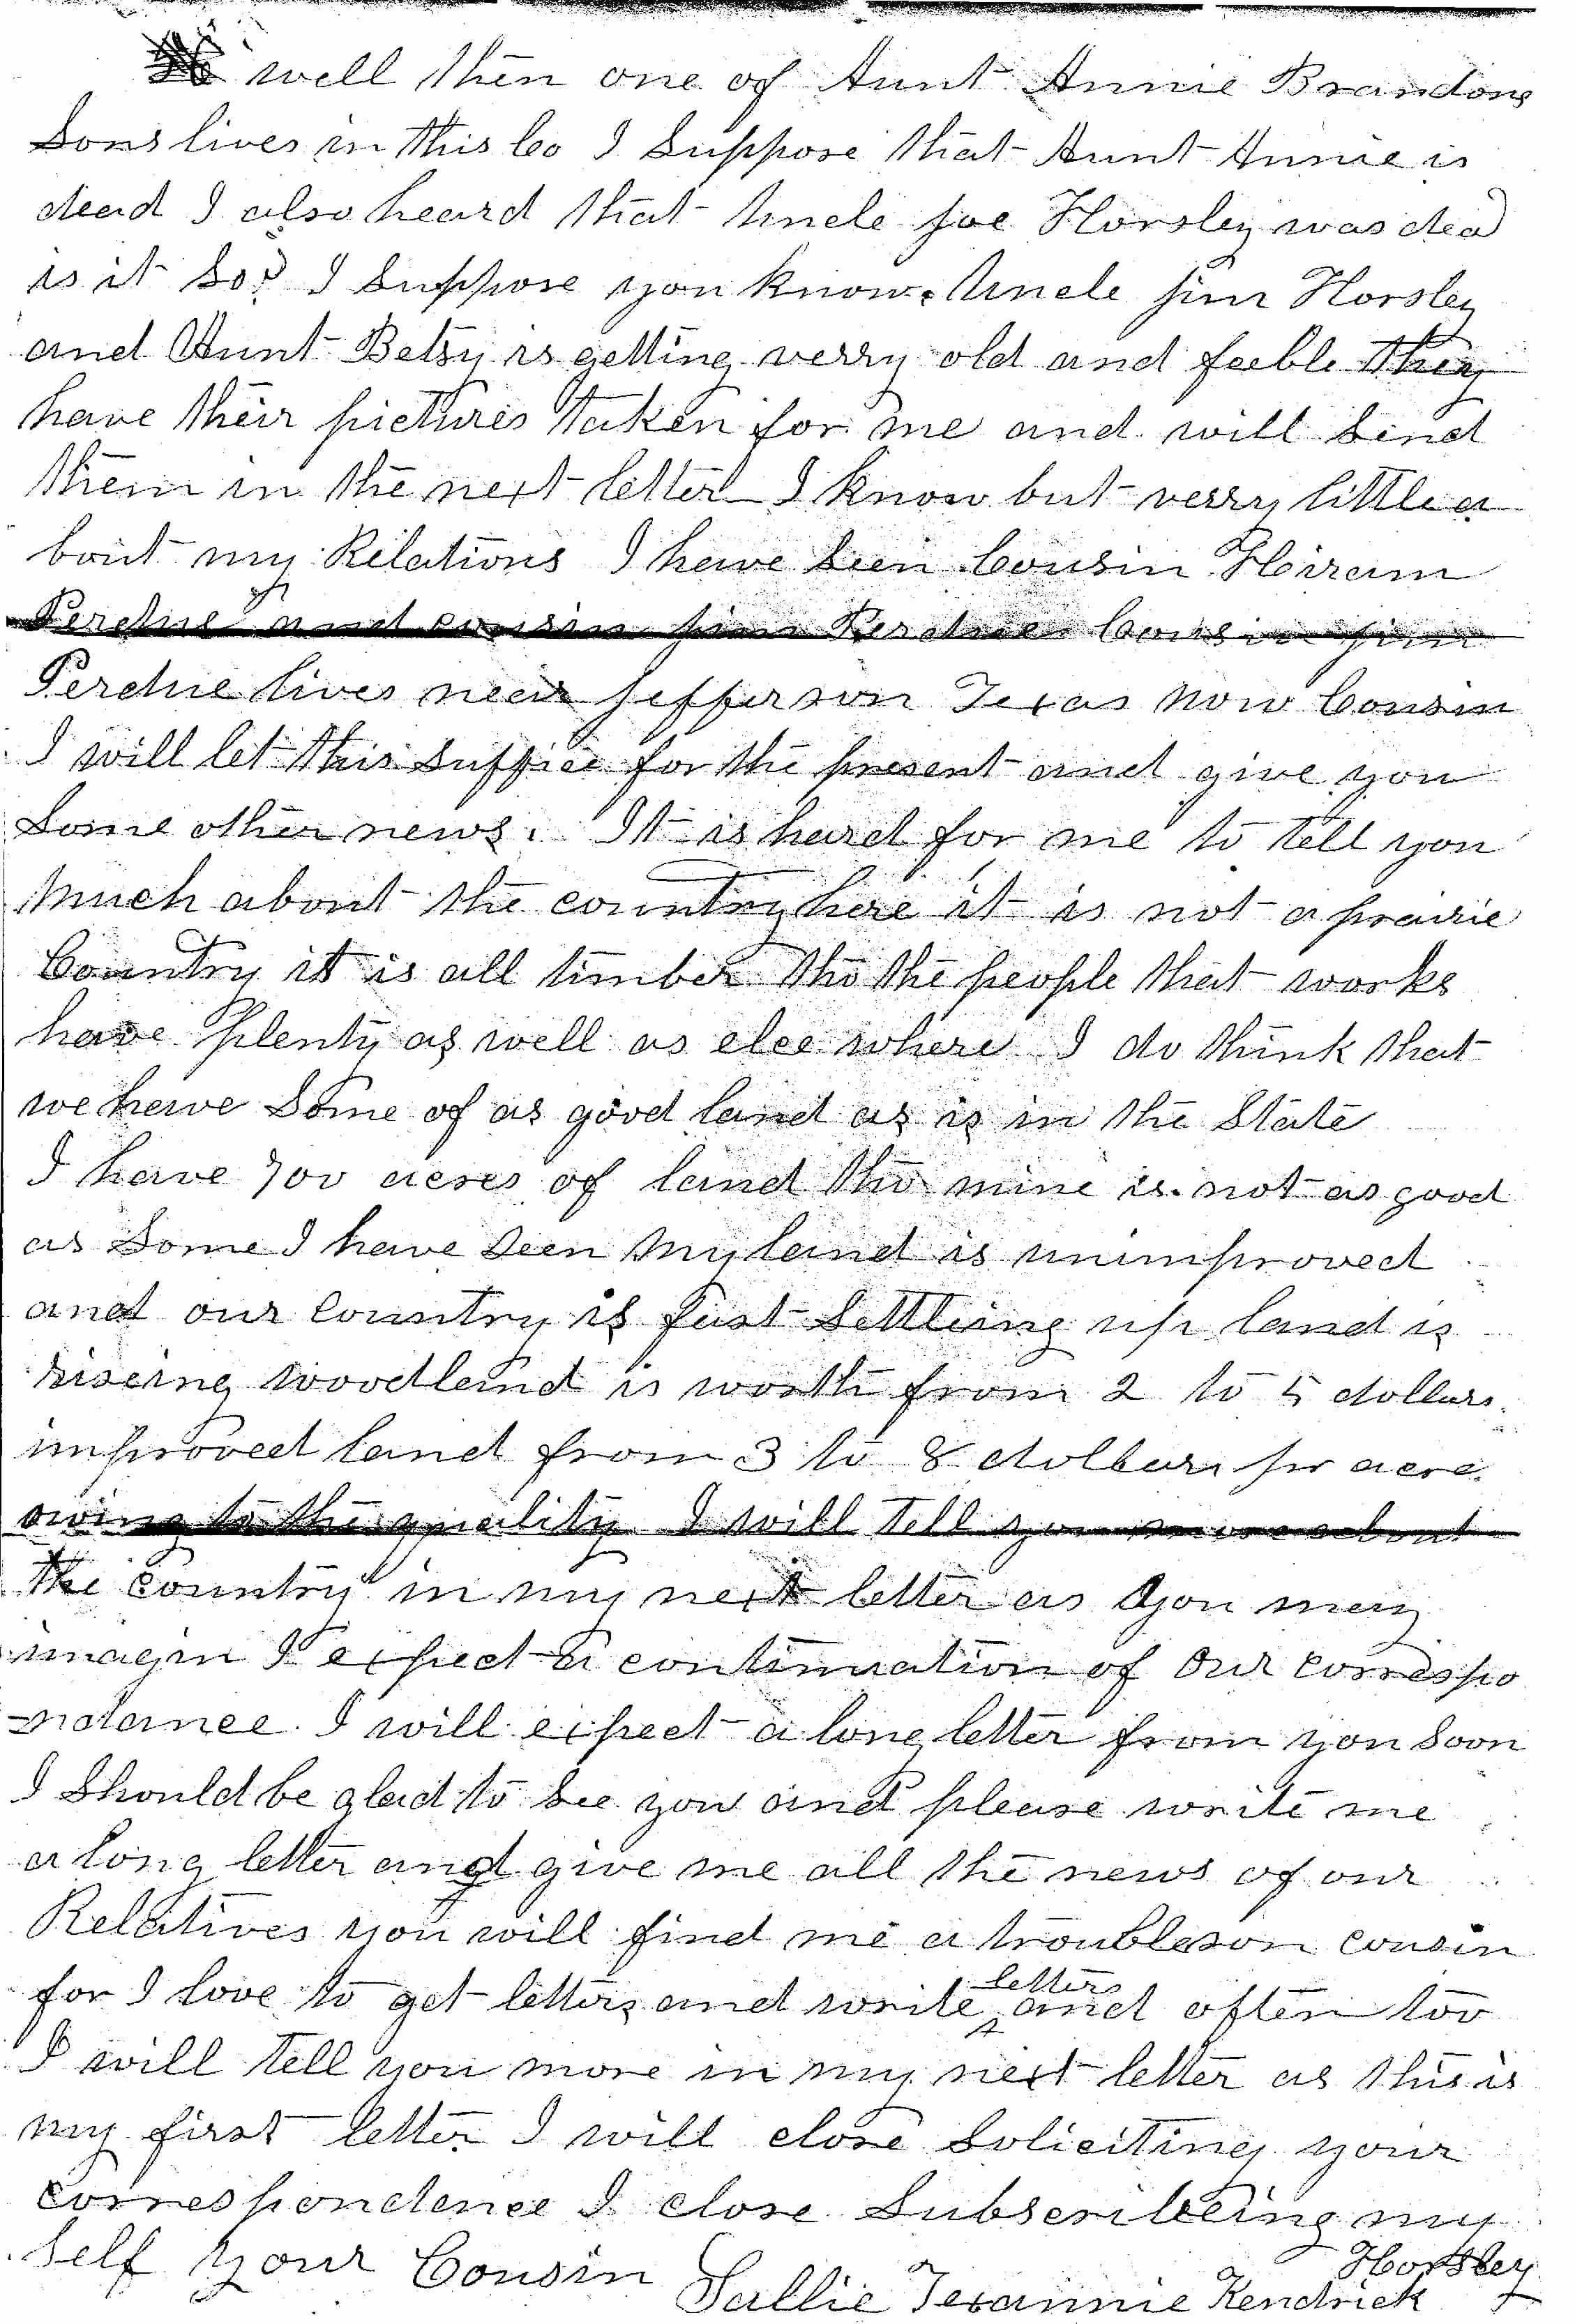 well then one of Aunt Annie Brandons
Sons lives in this Co I Suppose that Aunt Annie is
dead I also heard that Uncle Joe Horsley was dead
is it So? I Suppose you know. Uncle Jim Horsley
and Aunt Betsy is getting verry old and feeble they
have their pictures taken for me and will Send
them in the next letter I know but verry little a
bout my Relations I have Seen Cousin Hiram
Perdue and cousin Jim Perdue Cousin Jim
Perdue lives near Jefferson Texas Now Cousin
I will let this Suffice for the present and give you
Some other news. It is hard for me to tell you
Much about the country here it is not a prairie
Country it is all timber tho the people that works
have plenty as well as elce where I do think that
we have Some of as good land as is in the State
I have 700 acres of land tho mine is not as good
as Some I have Seen My land is unimproved
and our Country is fast Settleing up land is
riseing woodland is worth from 2 to 5 dollars
improved land from 3 to 8 dollars pr acre
owing to the quality I will tell you more about
the Country in my next letter as you may
imagin I expect a continuation of Our correspo
-ndance. I will expect a long letter from you Soon
I Should be glad to See you and please write me
a long letter and give me all the news of our
Relatives you will find me a troubleson cousin
for I love to get letters and write letters and often too
I will tell you more in my next letter as this is
my first letter I will close Soliciting your
correspondence I close Subscribeing my
Self Your Cousin
Sallie Texannie Horsley Kendrick